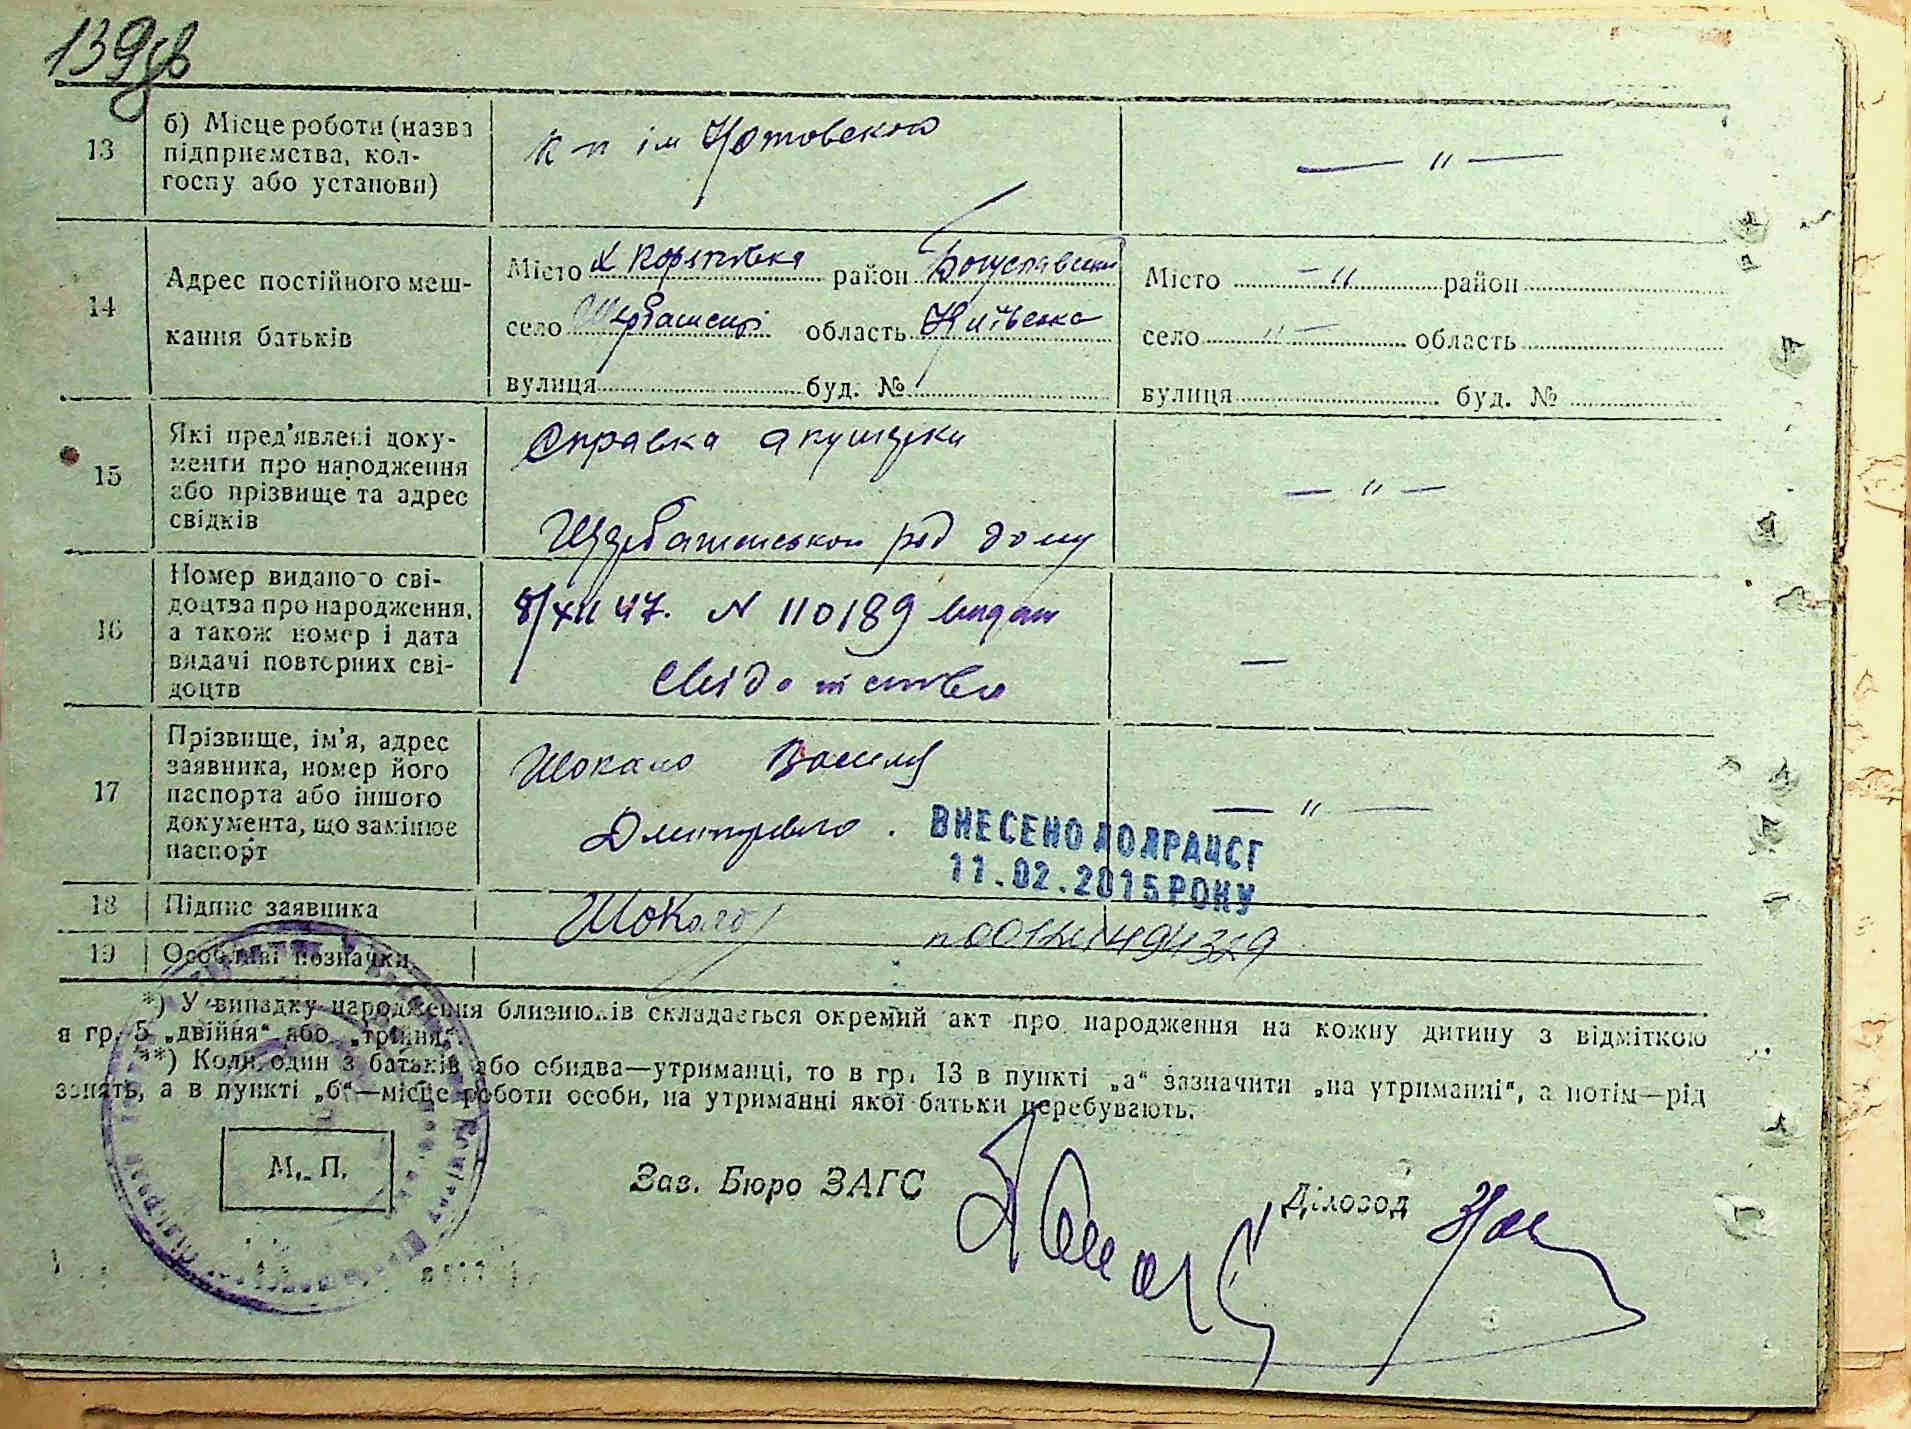 139 зв
13 б) Місце роботи (назва підприємства, колгоспу або установи)
к-п ім Котовского
— " —
14 Адрес постійного мешкання батьків
Місто х Коряківка район Богуславський
село Щербашенці область Київська
вулиця буд. №
Місто — " район
село " — область
вулиця буд. №
15 Які пред'явлені документи про народження або прізвище та адрес свідків
Справка акушерки
Щербашенськои род дому
— " —
16 Номер виданого свідоцтва про народження, а також номер і дата видачі повторних свідоцтв
8/XII 47. N 110189 видан
свідотство
—
17 Прізвище, ім'я, адрес заявника, номер його паспорта або іншого документа, що замінює паспорт
Шокало Василь
Дмитрович.
— " —
ВНЕСЕНО ДО ДРАЦСГ
11.02.2015 РОКУ
18 Підпис заявника
Шокало
19 Особливі позначки
*) У випадку народження близнюків складається окремий акт про народження на кожну дитину з відміткою
в гр. 5 „двійня" або „трійня".
**) Коли один з батьків або обидва—утриманці, то в гр. 13 в пункті „а" зазначити „на утриманні", а потім—рід
занять, а в пункті „б"—місце роботи особи, на утриманні якої батьки перебувають.
М. П.
Зав. Бюро ЗАГС
Діловод